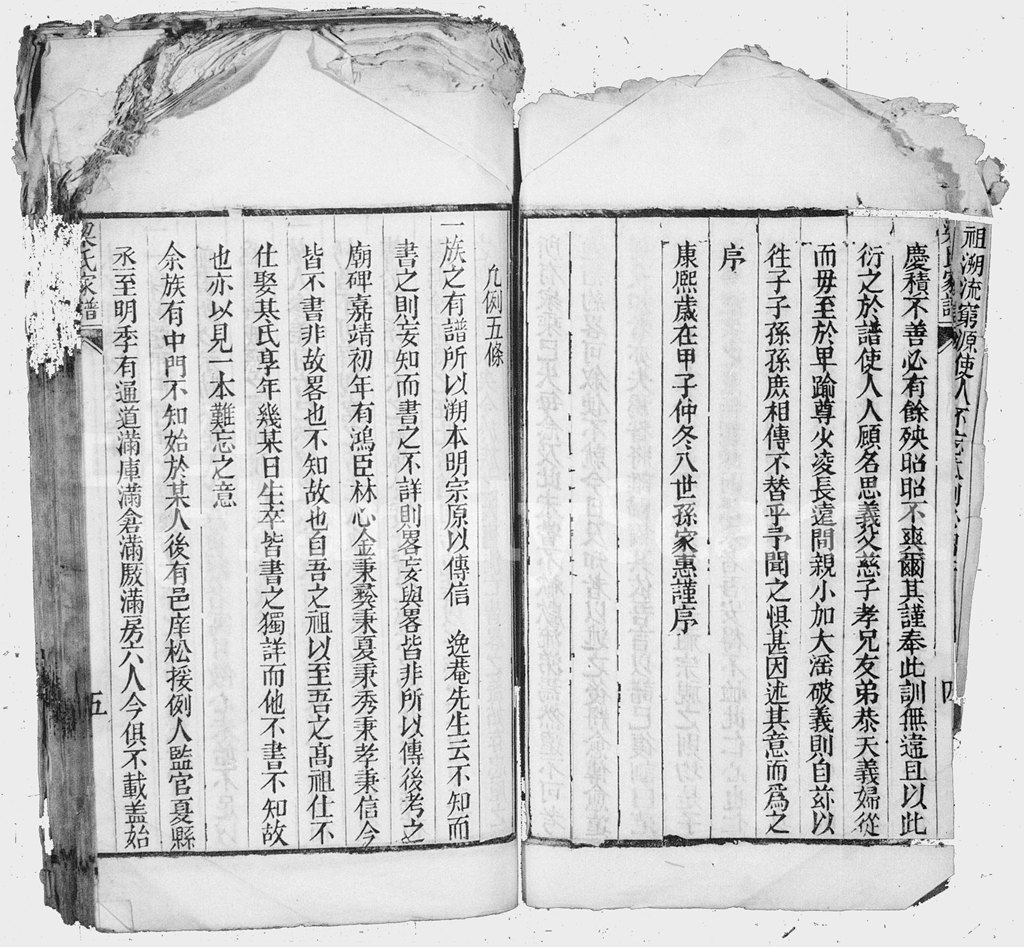 祖溯流窮源使人
慶積不善必有餘殃昭昭不爽爾其謹奉此訓無違且以此
衍之於譜使人人顧名思義父慈子孝兄友弟恭夫義婦從
而毋至於卑踰尊少凌長遠間親小加大滛破義則自玆以
徃子子孫孫庶相傳不替乎予聞之惧甚因述其意而爲之
序
康熙歲在甲子仲冬八世孫家惠謹序
凢例五條
一族之有譜所以溯本明宗原以傳信　逸菴先生云不知而
書之則妄知而書之不詳則畧妄與畧皆非所以傳後考之
廟碑嘉靖初年有鴻臣林心金秉彜秉夏秉秀秉孝秉信今
皆不書非故畧也不知故也自吾之祖以至吾之髙祖仕不
仕娶某氏享年幾某日生卒皆書之獨詳而他不書不知故
也亦以見一本難忘之意
余族有中門不知始於某人後有邑庠松援例人監官夏縣
丞至明季有通道滿庫滿倉滿厫滿房六人今俱不載盖始
梁氏家譜
五